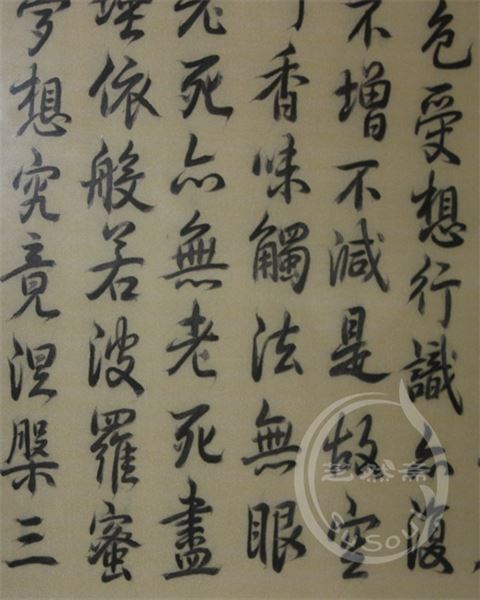 色受想行識亦復
不增不減是故空
香味觸法無眼
老死亦無老死盡
依般若波羅蜜
夢想究竟涅槃三